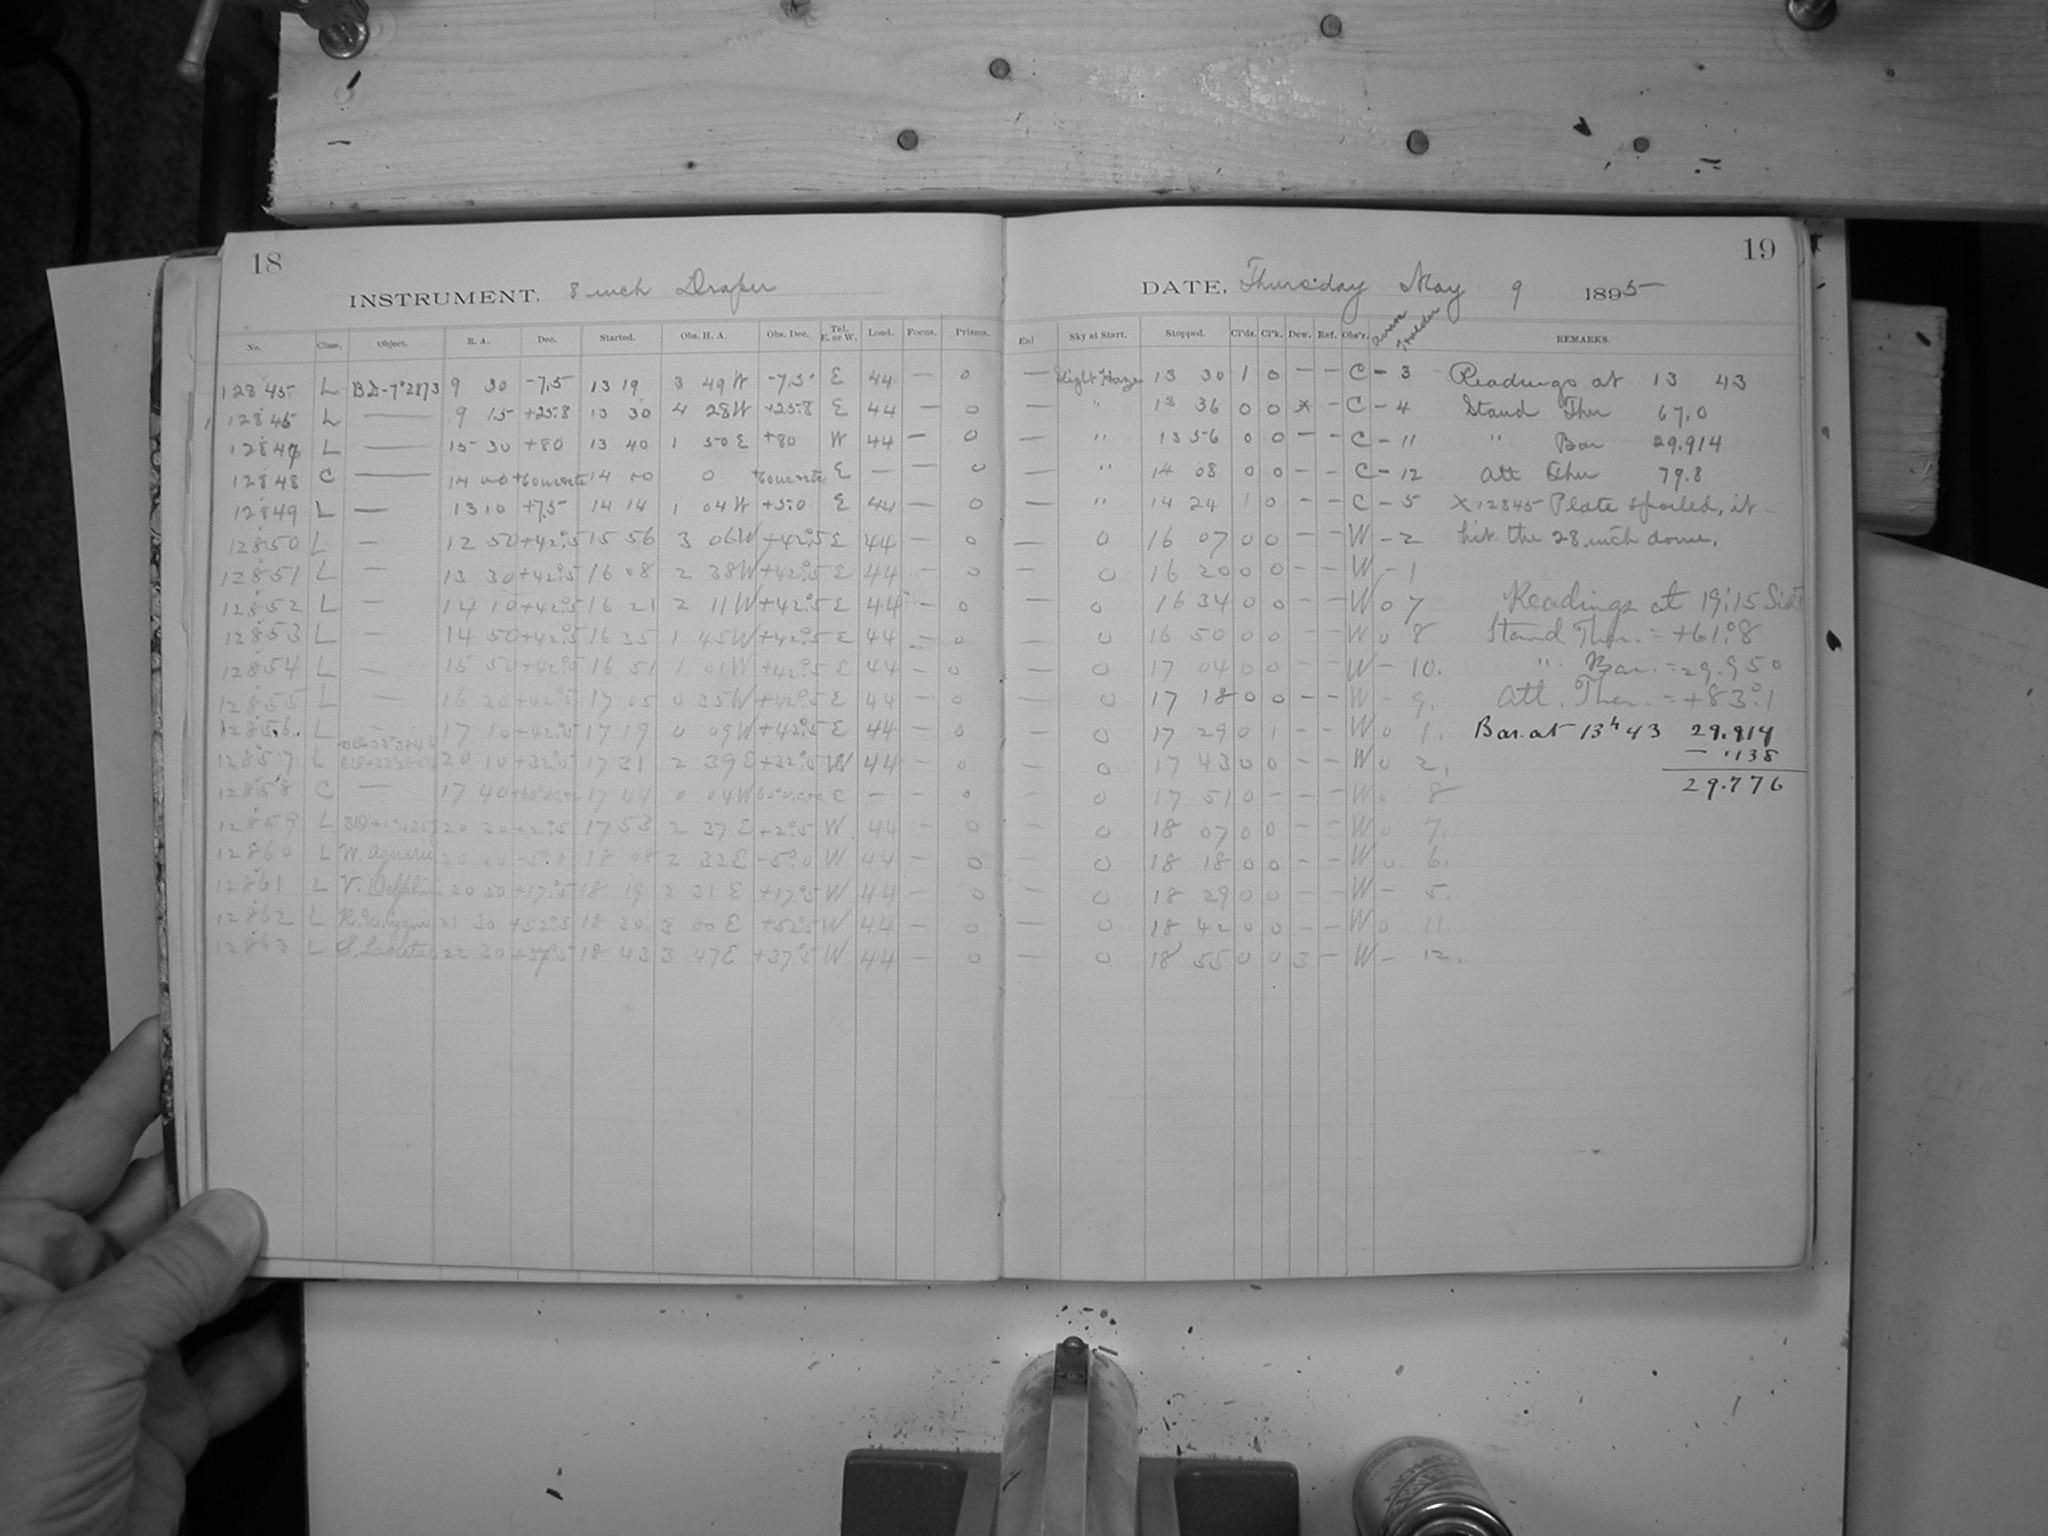 18
INSTRUMENT. 8 inch Draper
No. Class. Object. R. A. Dec. Started. Obs. H. A. Obs. Dec. Tel. E. or W. Load. Focus. Prisms.
12845 L BD-7°2873 9 30 -7.5 13 19 3 49W -7.5 E 44 — 0
12845 L — 9 15 +25.8 13 30 4 28W +25.8 E 44 — 0
12847 L — 15 30 +80 13 40 1 50E +80 W 44 — 0
12848 C — 14 00 14 00 0 E — — 0
12849 L — 13 10 +7.5 14 14 1 04W +5.0 E 44 — 0
12850 L — 12 50 +42°.5 15 56 3 06W +42°.5 E 44 — 0
12851 L — 13 30 +42°.5 16 08 2 38W +42°.5 E 44 — 0
12852 L — 14 10 +42°.5 16 21 2 11W +42°.5 E 44 — 0
12853 L — 14 50 +42°.5 16 35 1 45W +42°.5 E 44 — 0
12854 L — 15 50 +42°.5 16 51 1 01W +42°.5 E 44 — 0
12855 L — 16 30 +42°.5 17 05 0 35W +42°.5 E 44 — 0
12856 L — 17 10 +42°.5 17 19 0 09W +42°.5 E 44 — 0
12857 L 20 10 +32°.5 17 31 2 39E +32°.5 W 44 — 0
12858 C — 17 40 17 44 0 04W E — — 0
12859 L 20 30 +2°.5 17 53 2 37E +2°.5 W 44 — 0
12860 L W. Aquarii 20 40 -5°.0 18 08 2 32E -5°.0 W 44 — 0
12861 L V. Delphini 20 50 +17°.5 18 19 2 31E +17°.5 W 44 — 0
12862 L 21 30 +52°.5 18 30 3 00E +52°.5 W 44 — 0
12863 L S. Lacertae 22 30 +37°.5 18 43 3 47E +37°.5 W 44 — 0
19
DATE, Thursday May 9 1895
Sky at Start. Stopped. Cl'ds. Cl'k. Dew. Ref. Obs'r. Holder REMARKS.
— Slight Haze 13 30 1 0 — — C — 3 Readings at 13 43
— " 13 36 0 0 x — C — 4 Stand Ther 67.0
— " 13 56 0 0 — — C — 11 " Bar 29.914
— " 14 08 0 0 — — C — 12 Att Ther 79.8
— " 14 24 1 0 — — C — 5 X12845 Plate spoiled, it
— 0 16 07 0 0 — — W — 2 hit the 28 inch dome.
— 0 16 20 0 0 — — W — 1
— 0 16 34 0 0 — — W 0 7 Readings at 19:15 Sid
— 0 16 50 0 0 — — W 0 8 Stand Ther. = +61°.8
— 0 17 04 0 0 — — W — 10. " Bar. = 29.950
— 0 17 18 0 0 — — W — 9. Att. Ther. = +83°.1
— 0 17 29 0 1 — — W 0 1. Bar. at 13h 43 29.914
— 0 17 43 0 0 — — W 0 2. — .138
— 0 17 51 0 — — — W 0 8 29.776
— 0 18 07 0 0 — — W 0 7.
— 0 18 18 0 0 — — W 0 6.
— 0 18 29 0 0 — — W — 5.
— 0 18 42 0 0 — — W 0 11.
— 0 18 55 0 0 3 — W — 12.